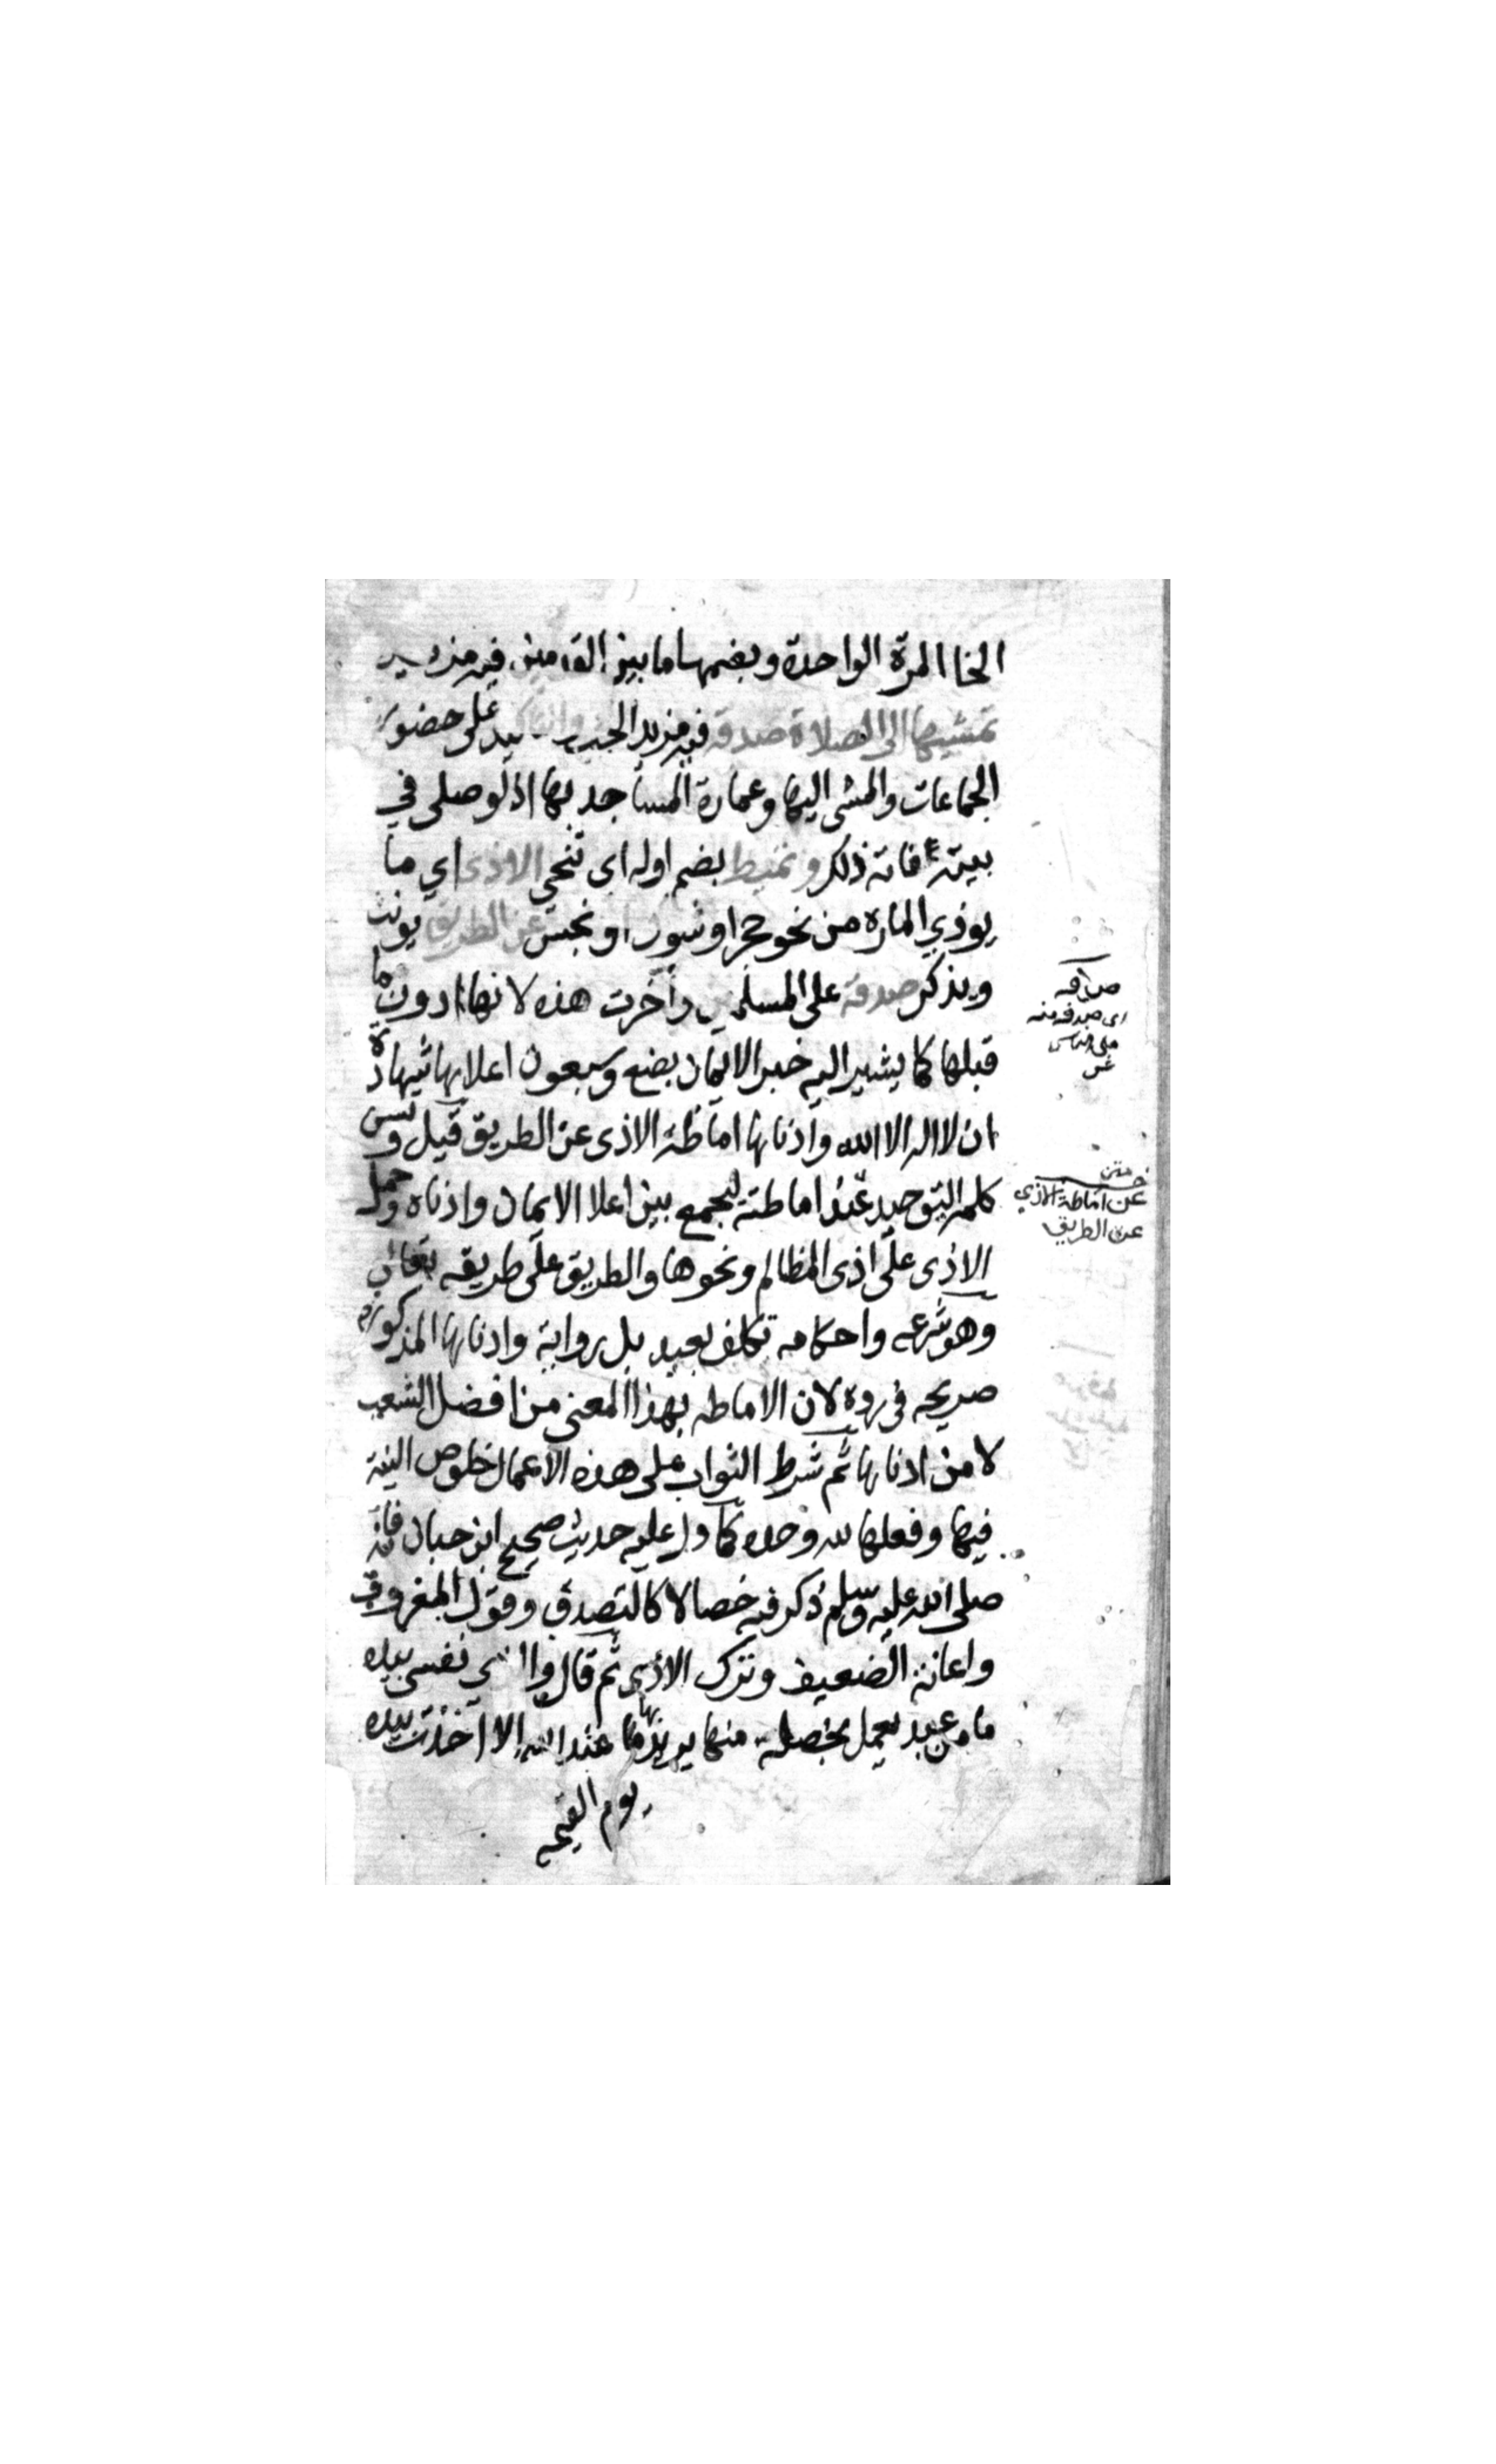 الخا المرة الواحدة وبضمها ما بين القدمين فيه مزيد
تمشيها الى الصلاة صدقة فيه مزيد الحث على حضور
الجماعات والمشى اليها وعمارة المساجد بها اذ لو صلى في
بيته فاته ذلك وتميط بضم اوله اى تنحي الاذى اي ما
يوذي المارة من نحو حجر او شوك او نجس عن الطريق يونث
ويذكر صدقة على المسلمين واخرت هذه لانها ادون ما
قبلها كما يشير اليه خبر الايمان بضع وسبعون اعلاها شهادة
ان لا اله الا الله وادناها اماطة الاذى عن الطريق قيل وتسن
كلمة التوحيد عند اماطته ليجمع بين اعلا الايمان وادناه وحمل
الاذى على اذى المظالم ونحوها والطريق على طريقه تعالى
وهو شرعه واحكامه تكلف بعيد بل رواية وادناها المذكورة
صريحه فى رده لان الاماطه بهذا المعنى من افضل الشعب
لا من ادناها ثم شرط الثواب على هذه الاعمال خلوص النية
فيها وفعلها لله وحده كما دل عليه حديث صحيح ابن حبان فانه
صلى الله عليه وسلم ذكر فيه خصالا كالتصدق وقول المعروف
واعانة الضعيف وترك الاذى ثم قال والذي نفسى بيده
ما من عبد يعمل بخصلة منها يريد بها ما عند الله الا اخذت بيده
يوم القيمه
صدقه
اى صدقه منه
على
متن
عن اماطة الاذي
عن الطريق